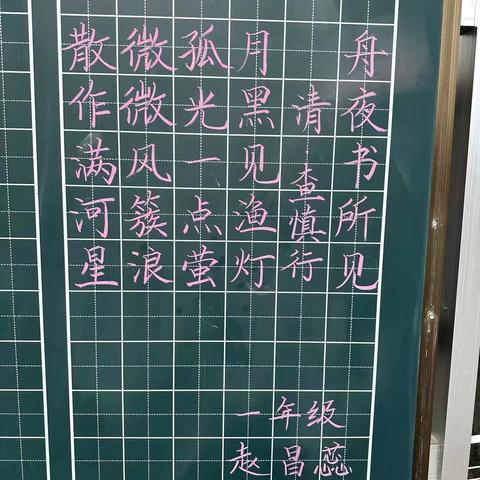 舟夜书所见
清·查慎行
月黑见渔灯
孤光一点萤
微微风簇浪
散作满河星
一年级
赵昌蕊